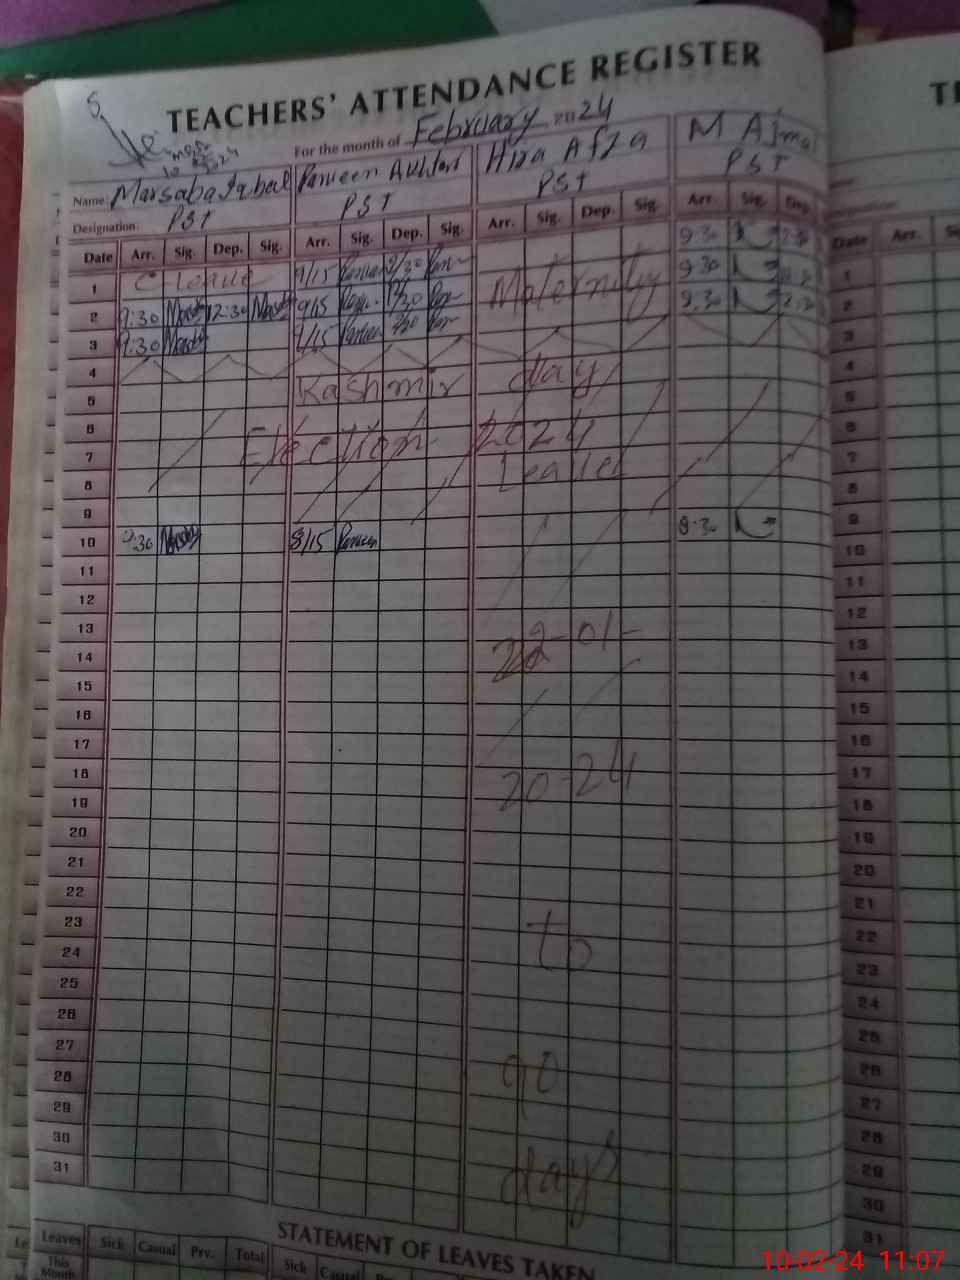 TEACHERS' ATTENDANCE REGISTER
For the month of February 2024
Name: Marsaba Iqbal Parveen Akhtar Hira Afza M Ajmal
Designation: PST PST PST PST
Date Arr. Sig. Dep. Sig. Arr. Sig. Dep. Sig. Arr. Sig. Dep. Sig. Arr. Sig. Dep.
1 C Leave 9/15 Maternity 9:30
2 9:30 12:30 9/15 12/30 9:30
3 9:30 9/15 9:30
4
5 Kashmir day
6
7 Election 2024
8 Leave
9
10 9:30 8/15 8:30
11
12
13
14 22-01-
15
16
17
18 20-24
19
20
21
22
23
24 to
25
26
27
28 90
29
30
31 days
STATEMENT OF LEAVES TAKEN
Leaves Sick Casual Prv. Total Sick Casual
This Month
Date Arr.
1
2
3
4
5
6
7
8
9
10
11
12
13
14
15
16
17
18
19
20
21
22
23
24
25
26
27
28
29
30
31
10-02-24 11:07